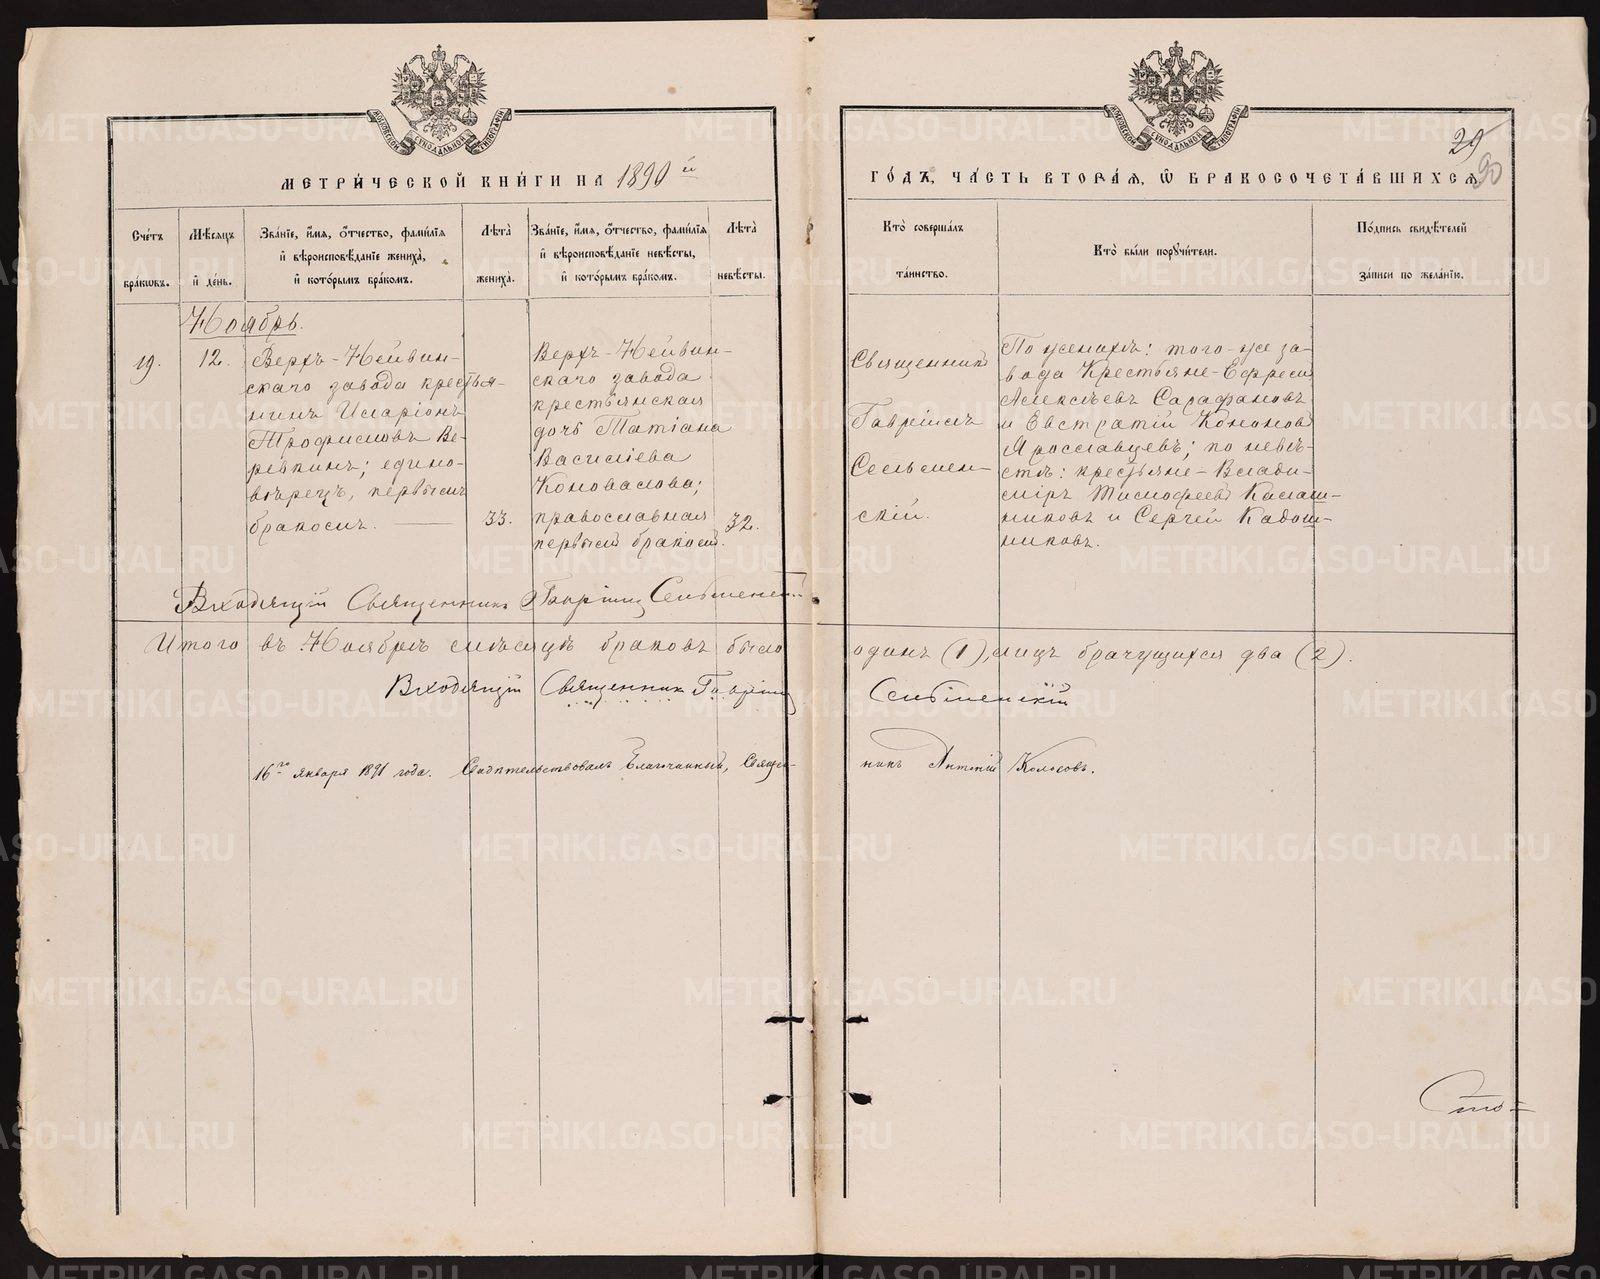 МОСКОВСКОЙ СУНОДАЛЬНОЙ ТИПОГРАФІИ
МОСКОВСКОЙ СУНОДАЛЬНОЙ ТИПОГРАФІИ
29
90
МЕТРИ́ЧЕСКОЙ КНИ́ГИ НА 1890й
ГО́ДЪ, ЧА́СТЬ ВТОРА́Я, Ѽ БРАКОСОЧЕТА́ВШИХСЯ
Сче́тъ
бра́кѡвъ.
Мѣ́сяцъ
и҆ де́нь.
Зва́нїе, и҆́мя, ѻ҆́тчество, фами́лїя
и҆ вѣроисповѣ́данїе жениха̀,
и҆ кото́рымъ бра́комъ.
Лѣ́та
жениха̀.
Зва́нїе, и҆́мя, ѻ҆́тчество, фами́лїя
и҆ вѣроисповѣ́данїе невѣ́сты,
и҆ кото́рымъ бра́комъ.
Лѣ́та
невѣ́сты.
Кто̀ соверша́лъ
та́инство.
Кто̀ бы́ли порꙋчи́тели.
По́дпись свидѣ́телей
за́писи по жела́нїю.
Ноябрь.
19.
12.
Верхъ-Нейвин-
скаго завода крестья-
нинъ Иларіонъ
Трофимовъ Ве-
ревкинъ; едино-
вѣрецъ, первымъ
бракомъ. —
33.
Верхъ-Нейвин-
скаго завода
крестьянская
дочь Татіана
Василіева
Коновалова;
православная
первымъ бракомъ.
32.
Священникъ
Гавріилъ
Сельмен-
скій.
По женихѣ: того-же за-
вода Крестьяне-Ефремъ
Алексѣевъ Сарафановъ
и Евстратій Кононовъ
Ярославцевъ; по невѣ-
стѣ: крестьяне-Влади-
міръ Тимофеевъ Калаш-
никовъ и Сергѣй Кадош-
никовъ.
Входящій Священникъ Гавріилъ Сельменскій
Итого въ Ноябрѣ мѣсяцѣ браковъ было одинъ (1), лицъ брачущихся два (2).
Входящій Священникъ Гавріилъ Сельменскій
16го января 1891 года. Свидѣтельствовалъ Благочинный, Священ-
никъ Антоній Колосовъ.
Сто-
METRIKI.GASO-URAL.RU